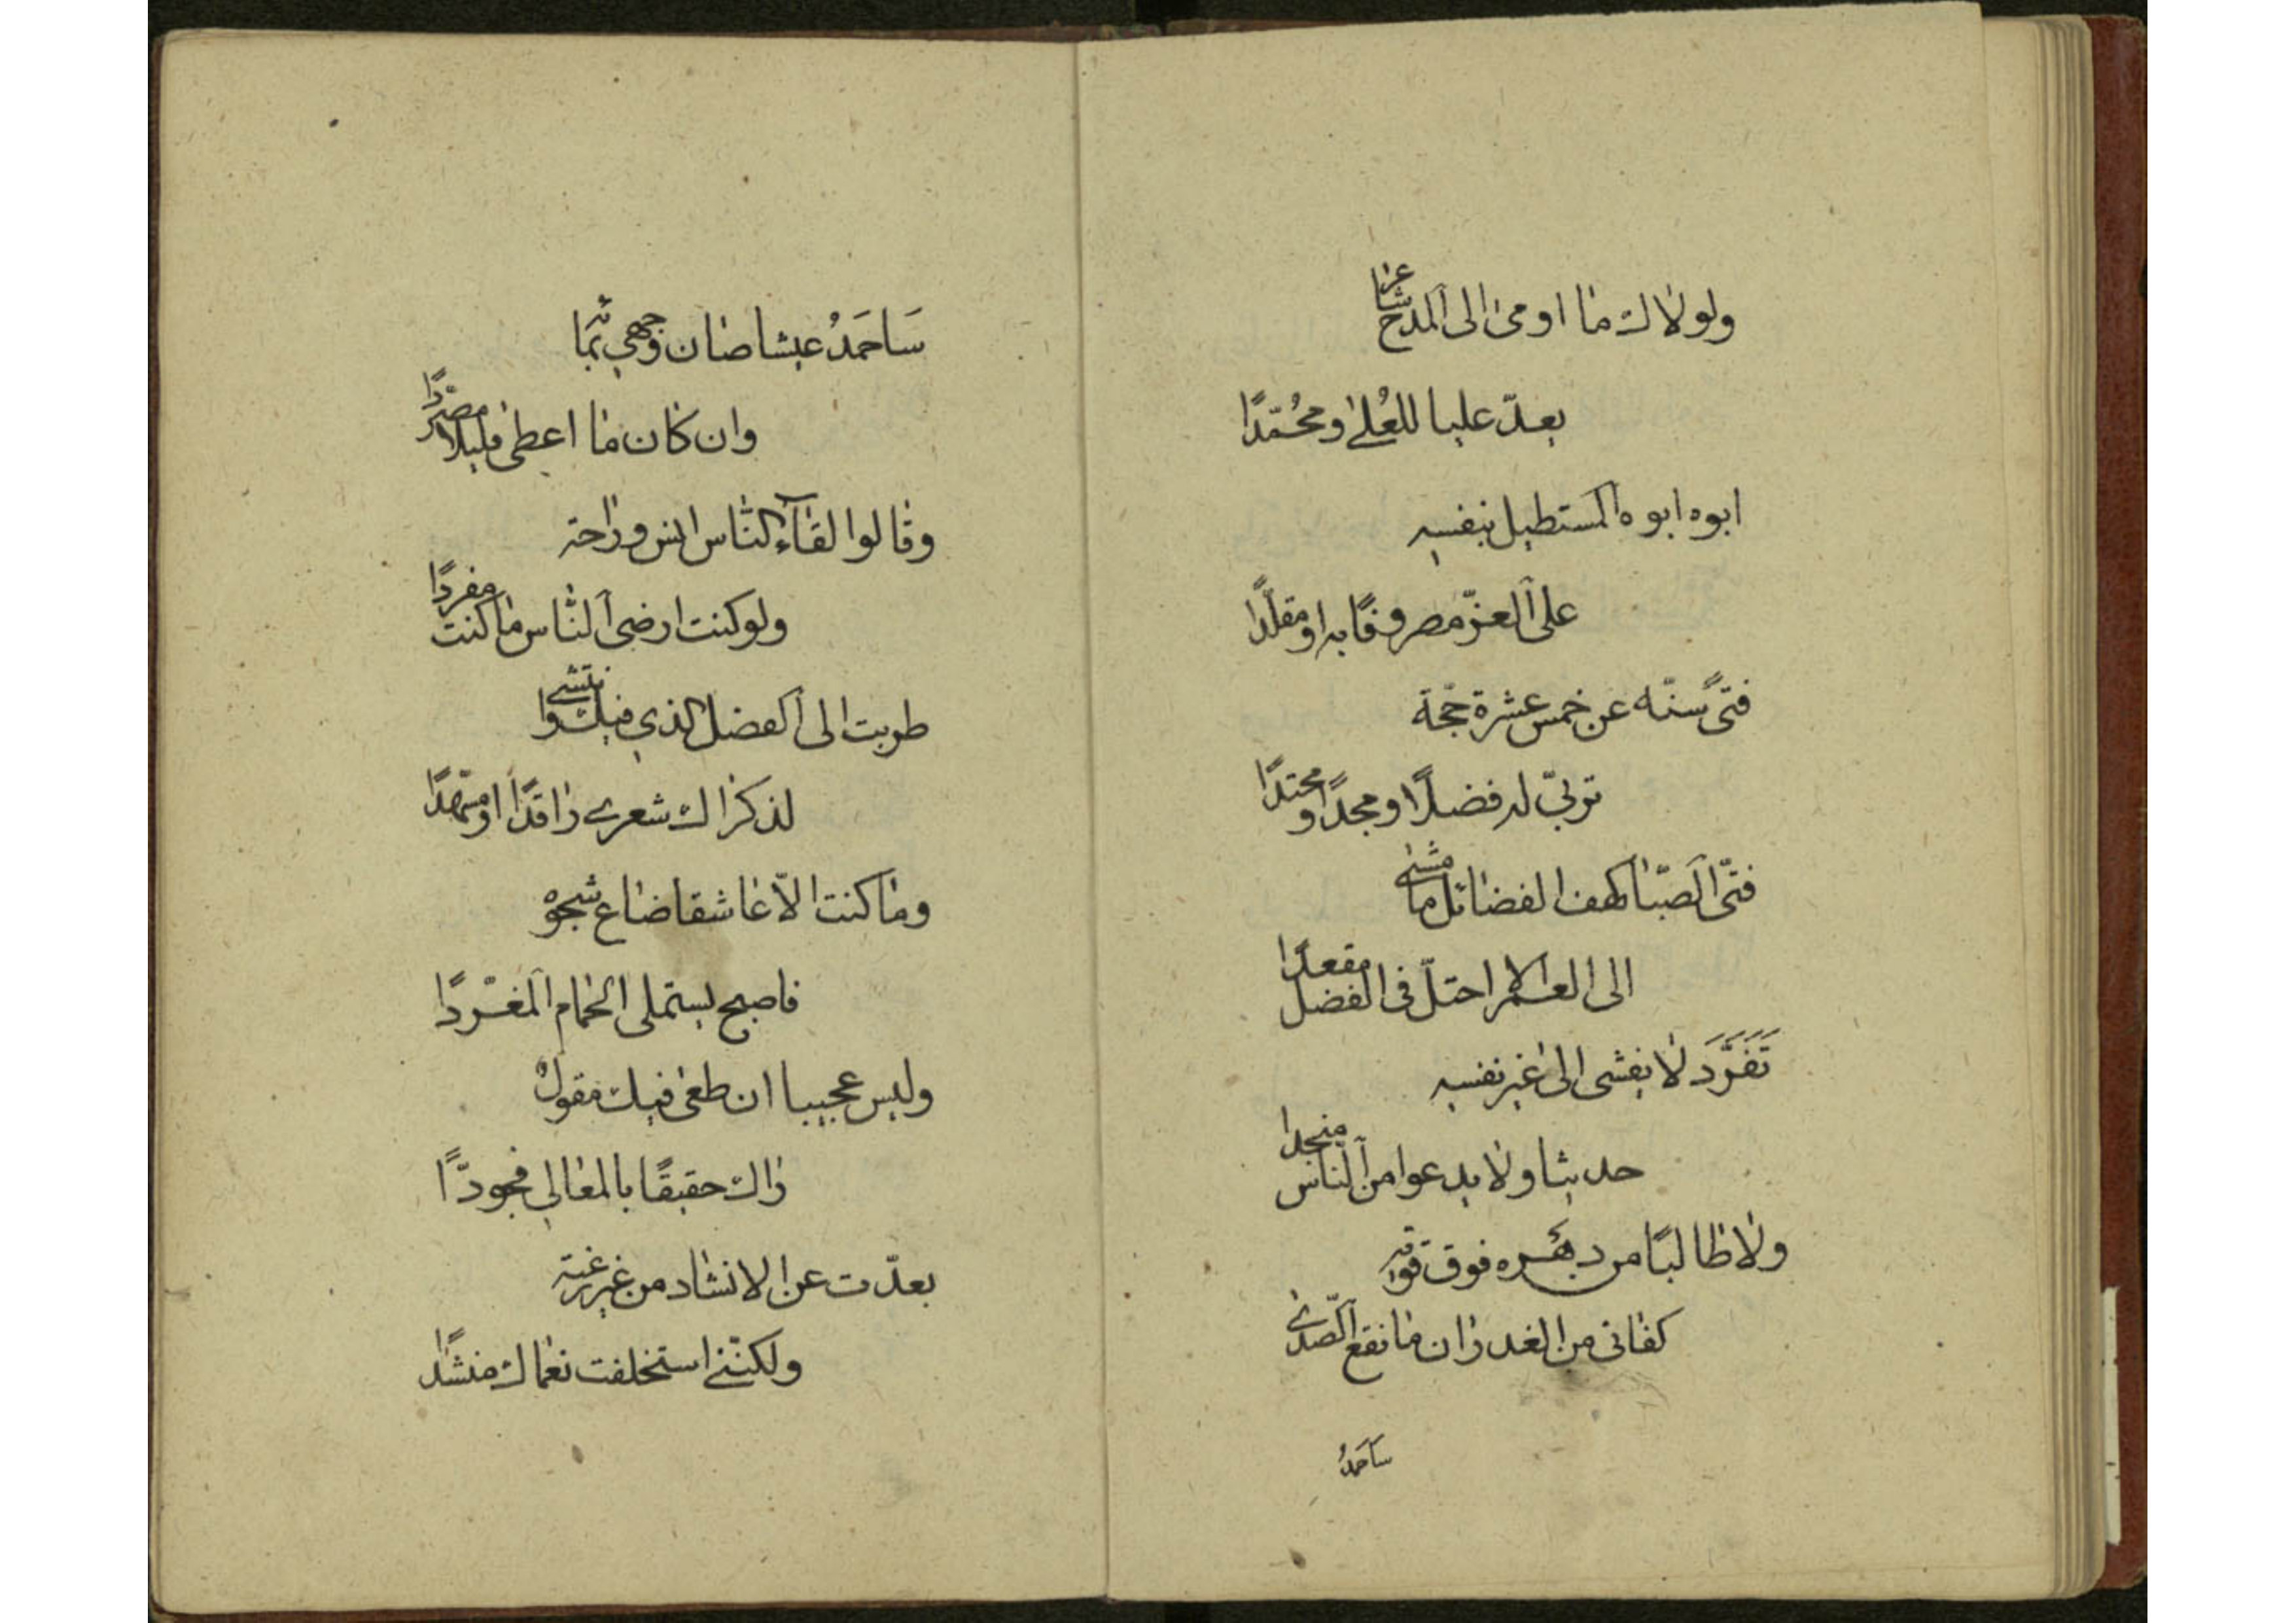 ولولاك ما اومى الى المدح شاعرا
يعدّ عليا للعُلى ومحُمّدًا
ابوه ابوه المستطيل بنفسه
على العزّ مصروفًا به او مقلّدًا
فتىً سنّه عن خمس عشرة حجّة
تربيّ له فضلًا ومجدًا ومحتدًا
فتىّ الصّبا كهف الفضائل ما مشى
الى العمر الا احتلّ فى الفضل مقعدًا
تَفَرَّدَ لا يفشى الى غير نفسه
حديثا ولا يدعوا من الناس منجدا
ولا طالبًا من دهره فوق قوته
كفانى من الغدران ما نقع الصّدى
سَاحَمدُ
سَاحَمَدُ عيشا صان وجهي بمائه
وان كان ما اعطى قليلا مصرّدًا
وقالوا لقآء الناس انس وراحة
ولو كنت ارضى الناس ما كنت مفردًا
طربت الى الفضل الذي فيك وانتشى
لذكراك شعرى راقدًا او مسهّدًا
وما كنت الاّ عاشقا ضاع شجوه
فاصبح يستملى الحمام المغرّدًا
وليس عجيبا ان طغى فيك مقولُ
راك حقيقًا بالمعالي فجودّا
بعدت عن الانشاد من غير رغبة
ولكنّنى استخلفت نعماك منشدًا